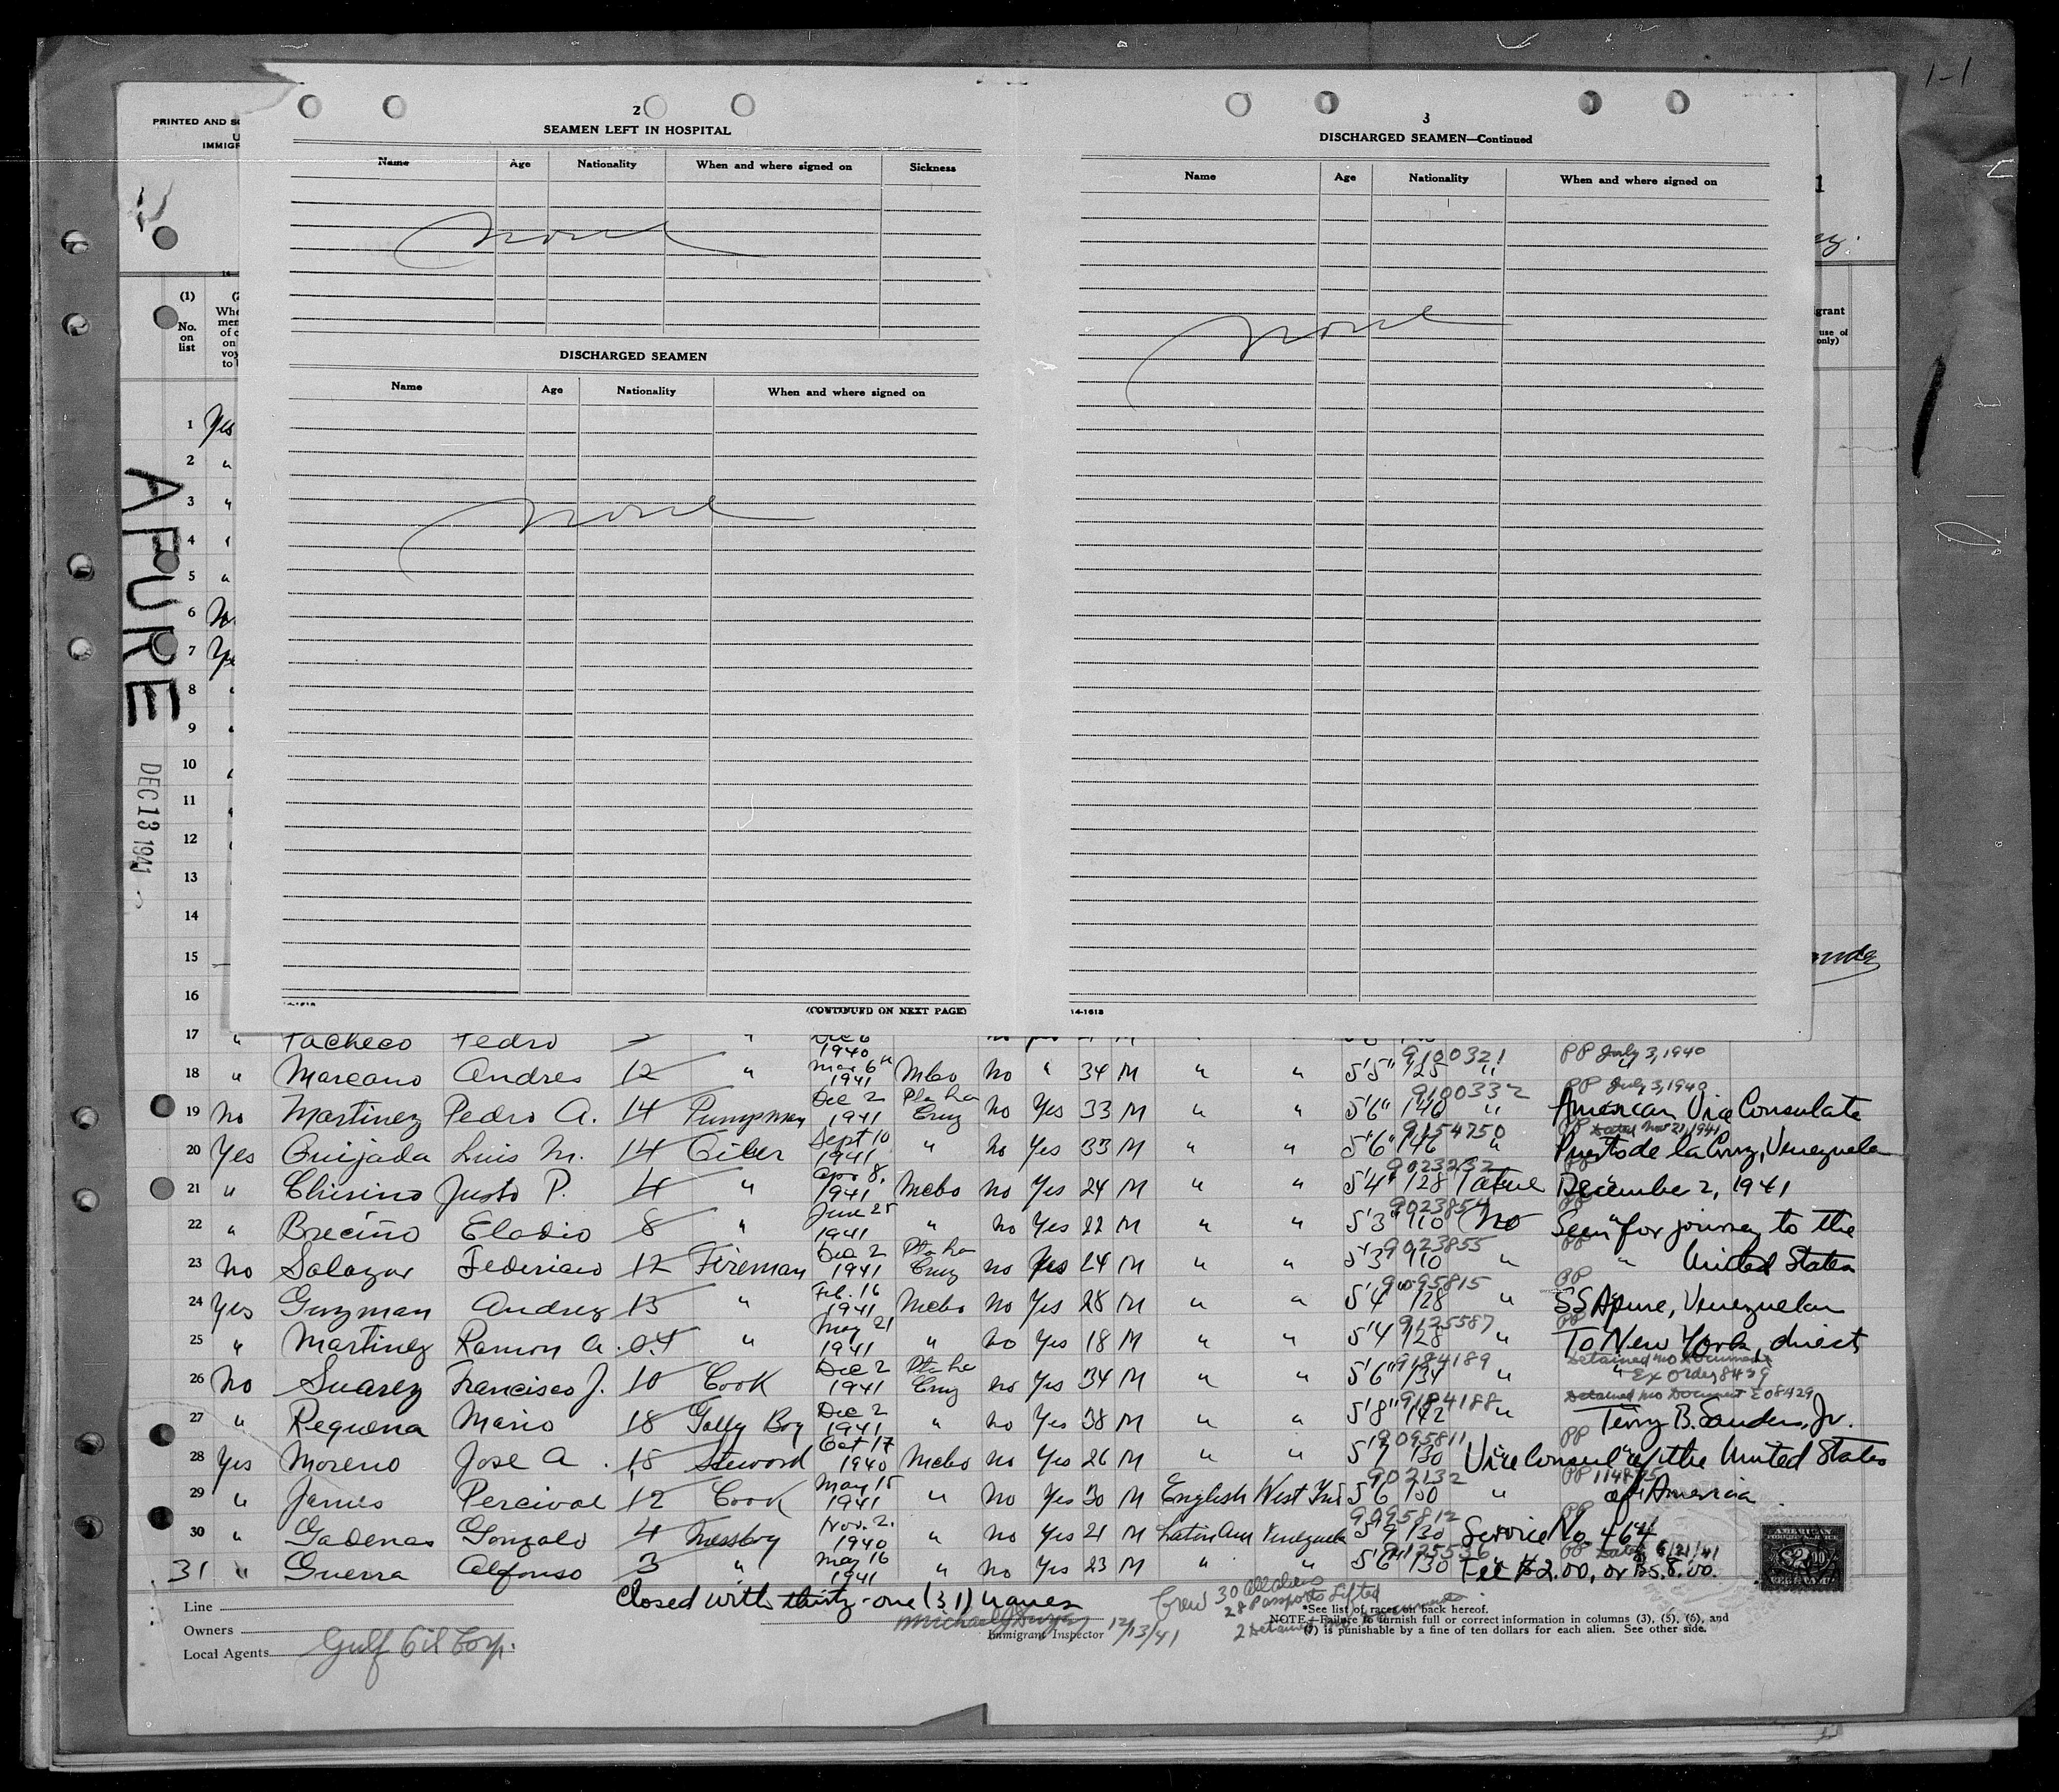 1-1
PRINTED AND
IMMIGR
2
SEAMEN LEFT IN HOSPITAL
Name Age Nationality When and where signed on Sickness
None
DISCHARGED SEAMEN
Name Age Nationality When and where signed on
None
(CONTINUED ON NEXT PAGE)
3
DISCHARGED SEAMEN—Continued
Name Age Nationality When and where signed on
None
14-1613
(1)
No.
on
list
grant
use of
only)
APURE
DEC 13 1941
1 Yes
2 "
3 "
4 "
5 "
6 No
7 Ye
8 "
9 "
10 "
11 "
12
13
14
15
16
17 " Pacheco Pedro " Dec 6 1940
18 " Marcano Andres 12 " Mar 6th 1941 Mcbo No " 34 M " " 5'5" 125 " 9100321 PP July 3, 1940
19 No Martinez Pedro A. 14 Pumpman Dec 2 1941 Pto La Cruz No Yes 33 M " " 5'6" 146 " 9100332 PP July 3, 1940 American Vice Consulate
20 Yes Quijada Luis M. 14 Oiler Sept 10 1941 " No Yes 33 M " " 5'6" 146 " 9154750 PP Dated Nov 21, 1941 Puerto de la Cruz, Venezuela
21 " Chirino Justo P. 4 " Apr 8, 1941 Mcbo no Yes 24 M " " 5'4" 128 9023232 December 2, 1941
22 " Breciño Eladio 8 " June 25 1941 " No Yes 22 M " " 5'3" 110 No 9023854 PP Seen for journey to the
23 No Salazar Federico 12 Fireman Dec 2 1941 Pto La Cruz no Yes 24 M " " 5'3" 110 " 9023855 PP " United States
24 Yes Guzman Andrez 13 " Feb. 16 1941 Mcbo No Yes 28 M " " 5'4" 128 " 9095815 PP SS Apure, Venezuelan
25 " Martinez Ramon A. 0.4 " May 21 1941 " No Yes 18 M " " 5'4 128 " 9125587 PP To New York, direct
26 No Suarez Francisco J. 10 Cook Dec 2 1941 Pto La Cruz no Yes 34 M " " 5'6" 134 " 9184189 Detained no Document Ex Order 8429
27 " Requena Mario 18 Gally Boy Dec 2 1941 " no Yes 38 M " " 5'8" 142 " 9184188 Detained no Document E O 8429 Terry B. Sanders, Jr.
28 Yes Moreno Jose A. 15 Steword Oct 17 1940 Mcbo no Yes 26 M " " 5'7 130 9095811 PP Vice Consul of the United States
29 " James Percival 12 Cook May 15 1941 " No Yes 30 M English West Ind 5'6 150 " 902132 PP of America
30 " Cadenas Gonzalo 4 Messboy Nov. 2. 1940 " No Yes 21 M Latin Am Venezuela 5'9 130 9095812 PP Service No. 464
31 " Guerra Alfonso 3 " May 16 1941 " No Yes 23 M " " 5'6" 130 9125536 PP Dated 6/21/41 Fee $2.00, or Bs 8.00.
Closed with thirty-one (31) names
Crew 30 all aliens
28 Passports Lifted
2 Detained
Line
Owners
Local Agents Gulf Oil Corp.
Immigrant Inspector 12/13/41
*See list of races on back hereof.
NOTE.—Failure to furnish full or correct information in columns (3), (5), (6), and
(7) is punishable by a fine of ten dollars for each alien. See other side.
AMERICAN
$2.00